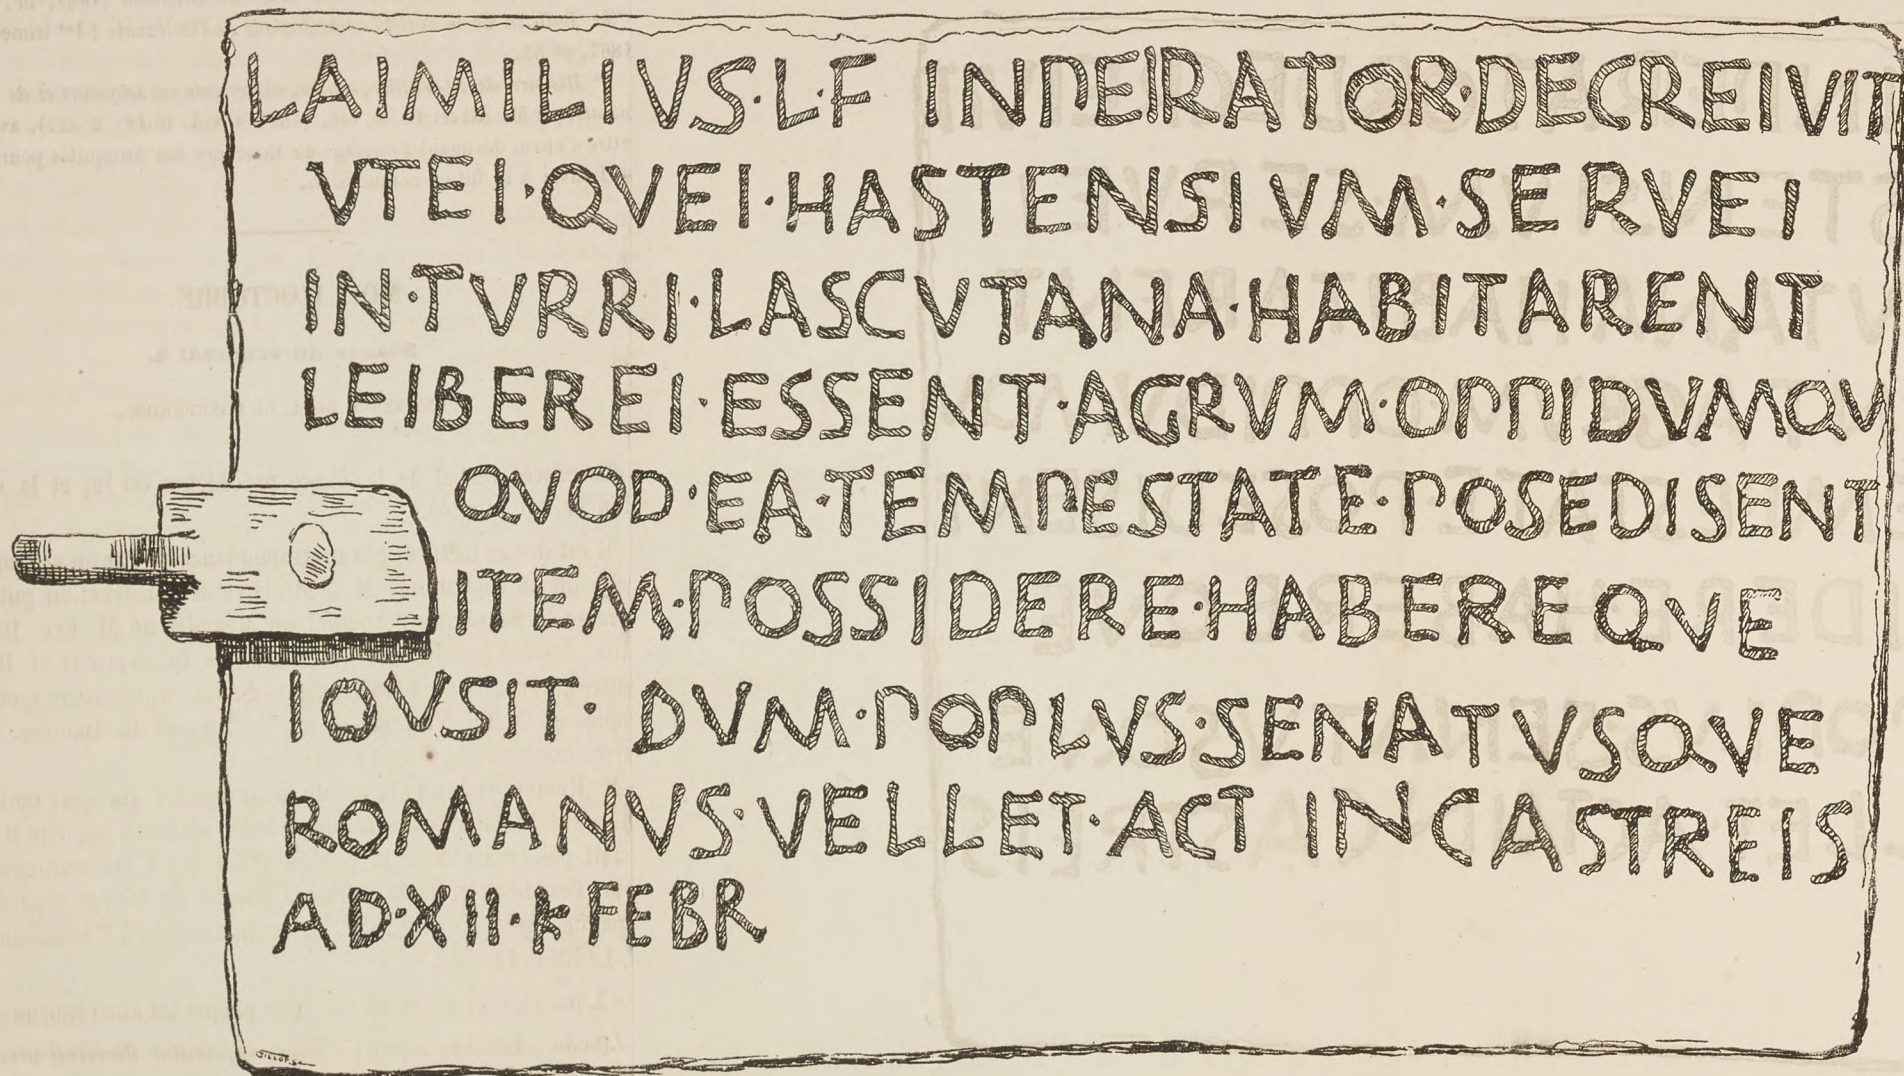 LAIMILIVS·L·F INPEIRATOR·DECREIVIT
VTEI·QVEI·HASTENSIVM·SERVEI
IN·TVRRI·LASCVTANA·HABITARENT
LEIBEREI·ESSENT·AGRVM·OPPIDVMQV
QVOD·EA·TEMPESTATE·POSEDISENT
ITEM·POSSIDERE·HABEREQVE
IOVSIT·DVM·POPLVS·SENATVSQVE
ROMANVS·VELLET·ACT IN CASTREIS
AD·XII·K·FEBR
GILLOT.Sc